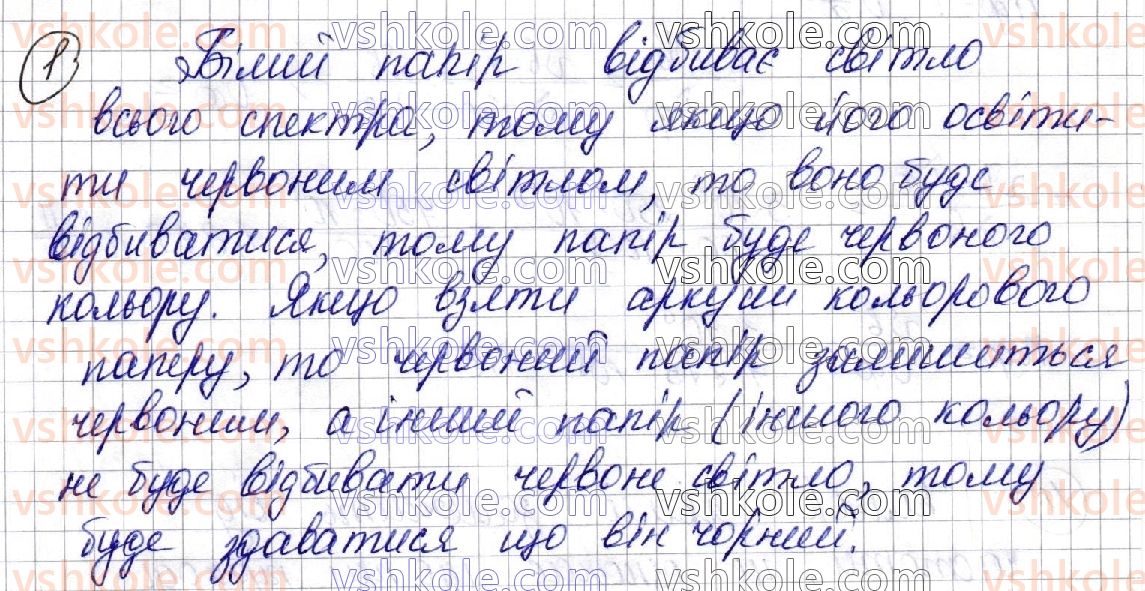 1 Білий папір відбиває світло
всього спектра, тому якщо його освіти-
ти червоним світлом, то воно буде
відбиватися, тому папір буде червоного
кольору. Якщо взяти аркуш кольорового
паперу, то червоний папір залишиться
червоним, а інший папір (іншого кольору)
не буде відбивати червоне світло, тому
буде здаватися що він чорний.
vshkole.com